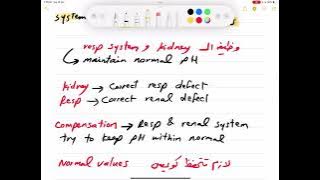 system
resp system و kidney وظيفة الـ
maintain normal pH
kidney → Correct resp defect
Resp → Correct renal defect
Compensation → Resp & renal system
try to keep pH within normal
Normal values لازم تتحفظ كويس